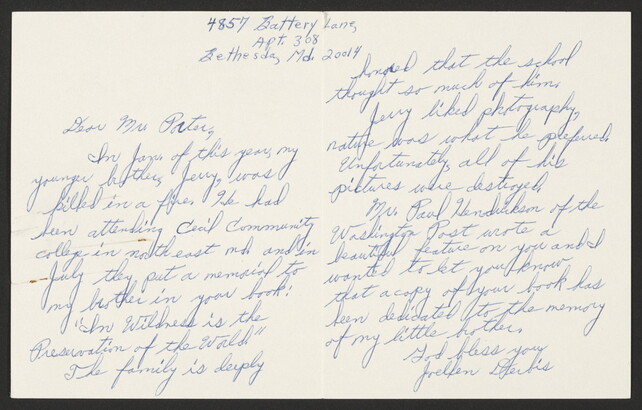 4857 Battery Lane,
Apt. 308
Bethesda, Md. 20014
Dear Mr. Porter,
In Jan. of this year, my
younger brother, Jerry, was
killed in a fire. He had
been attending Cecil Community
college in northeast Md. and in
July they put a memorial to
my brother in your book:
"In Wildness is the
Preservation of the World"
The family is deeply
honored that the school
thought so much of him.
Jerry liked photography,
nature was what he prefered.
Unfortunately, all of his
pictures were destroyed.
Mr. Paul Hendrickson of the
Washington Post wrote a
beautiful feature on you and I
wanted to let you know
that a copy of your book has
been dedicated to the memory
of my little brother.
God bless you
Joellen